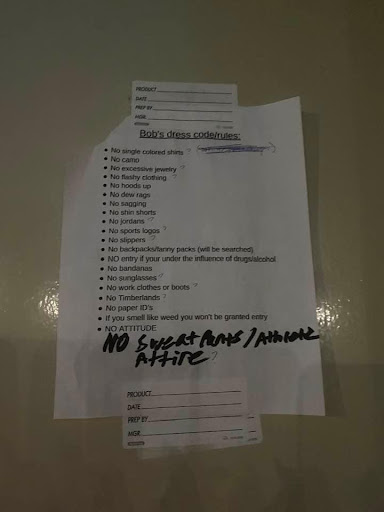 PRODUCT
DATE
PREP BY
MGR
Bob's dress code/rules:
• No single colored shirts ?
• No camo
• No excessive jewelry ?
• No flashy clothing ?
• No hoods up
• No dew rags
• No sagging
• No shin shorts
• No jordans ?
• No sports logos ?
• No slippers ?
• No backpacks/fanny packs (will be searched)
• NO entry if your under the influence of drugs/alcohol
• No bandanas
• No sunglasses ?
• No work clothes or boots ?
• No Timberlands ?
• No paper ID's
• If you smell like weed you won't be granted entry
• NO ATTITUDE
NO Sweat Pants/Athletic
Attire ?
PRODUCT
DATE
PREP BY
MGR